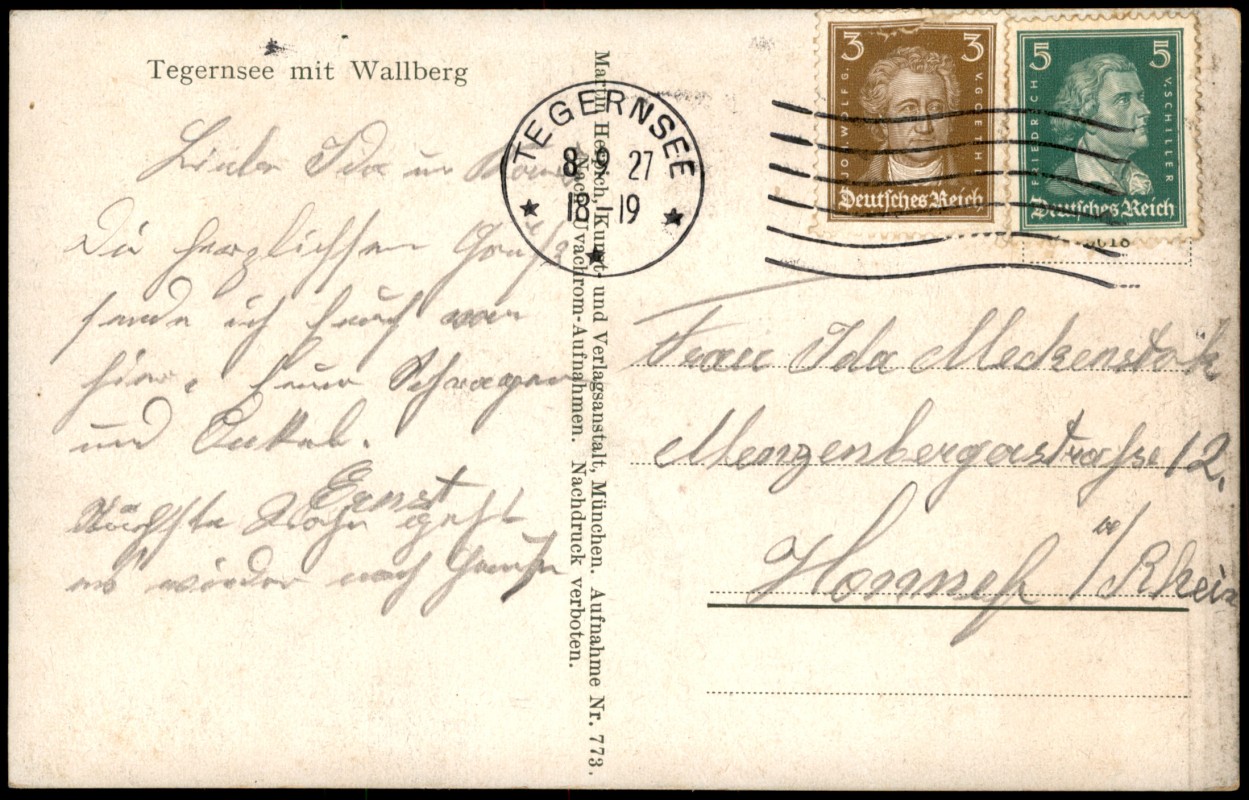 Tegernsee mit Wallberg
Liebe Ida u
Die herzlichsten Grüße
sende ich Euch von
hier. Euer Schwager
und Onkel.
Ernst
Nächste Woche geht
es wieder nach Hause
Martin Herpich, Kunst- und Verlagsanstalt, München. Aufnahme Nr. 773.
Nach Uvachrom-Aufnahmen. Nachdruck verboten.
TEGERNSEE
8 9 27
18-19
3 3
JOH. WOLFG. V. GOETHE
Deutsches Reich
5 5
FRIEDRICH V. SCHILLER
Deutsches Reich
Frau Ida Meckenstock
Menzenbergastrasse 12.
Honnef a/Rhein